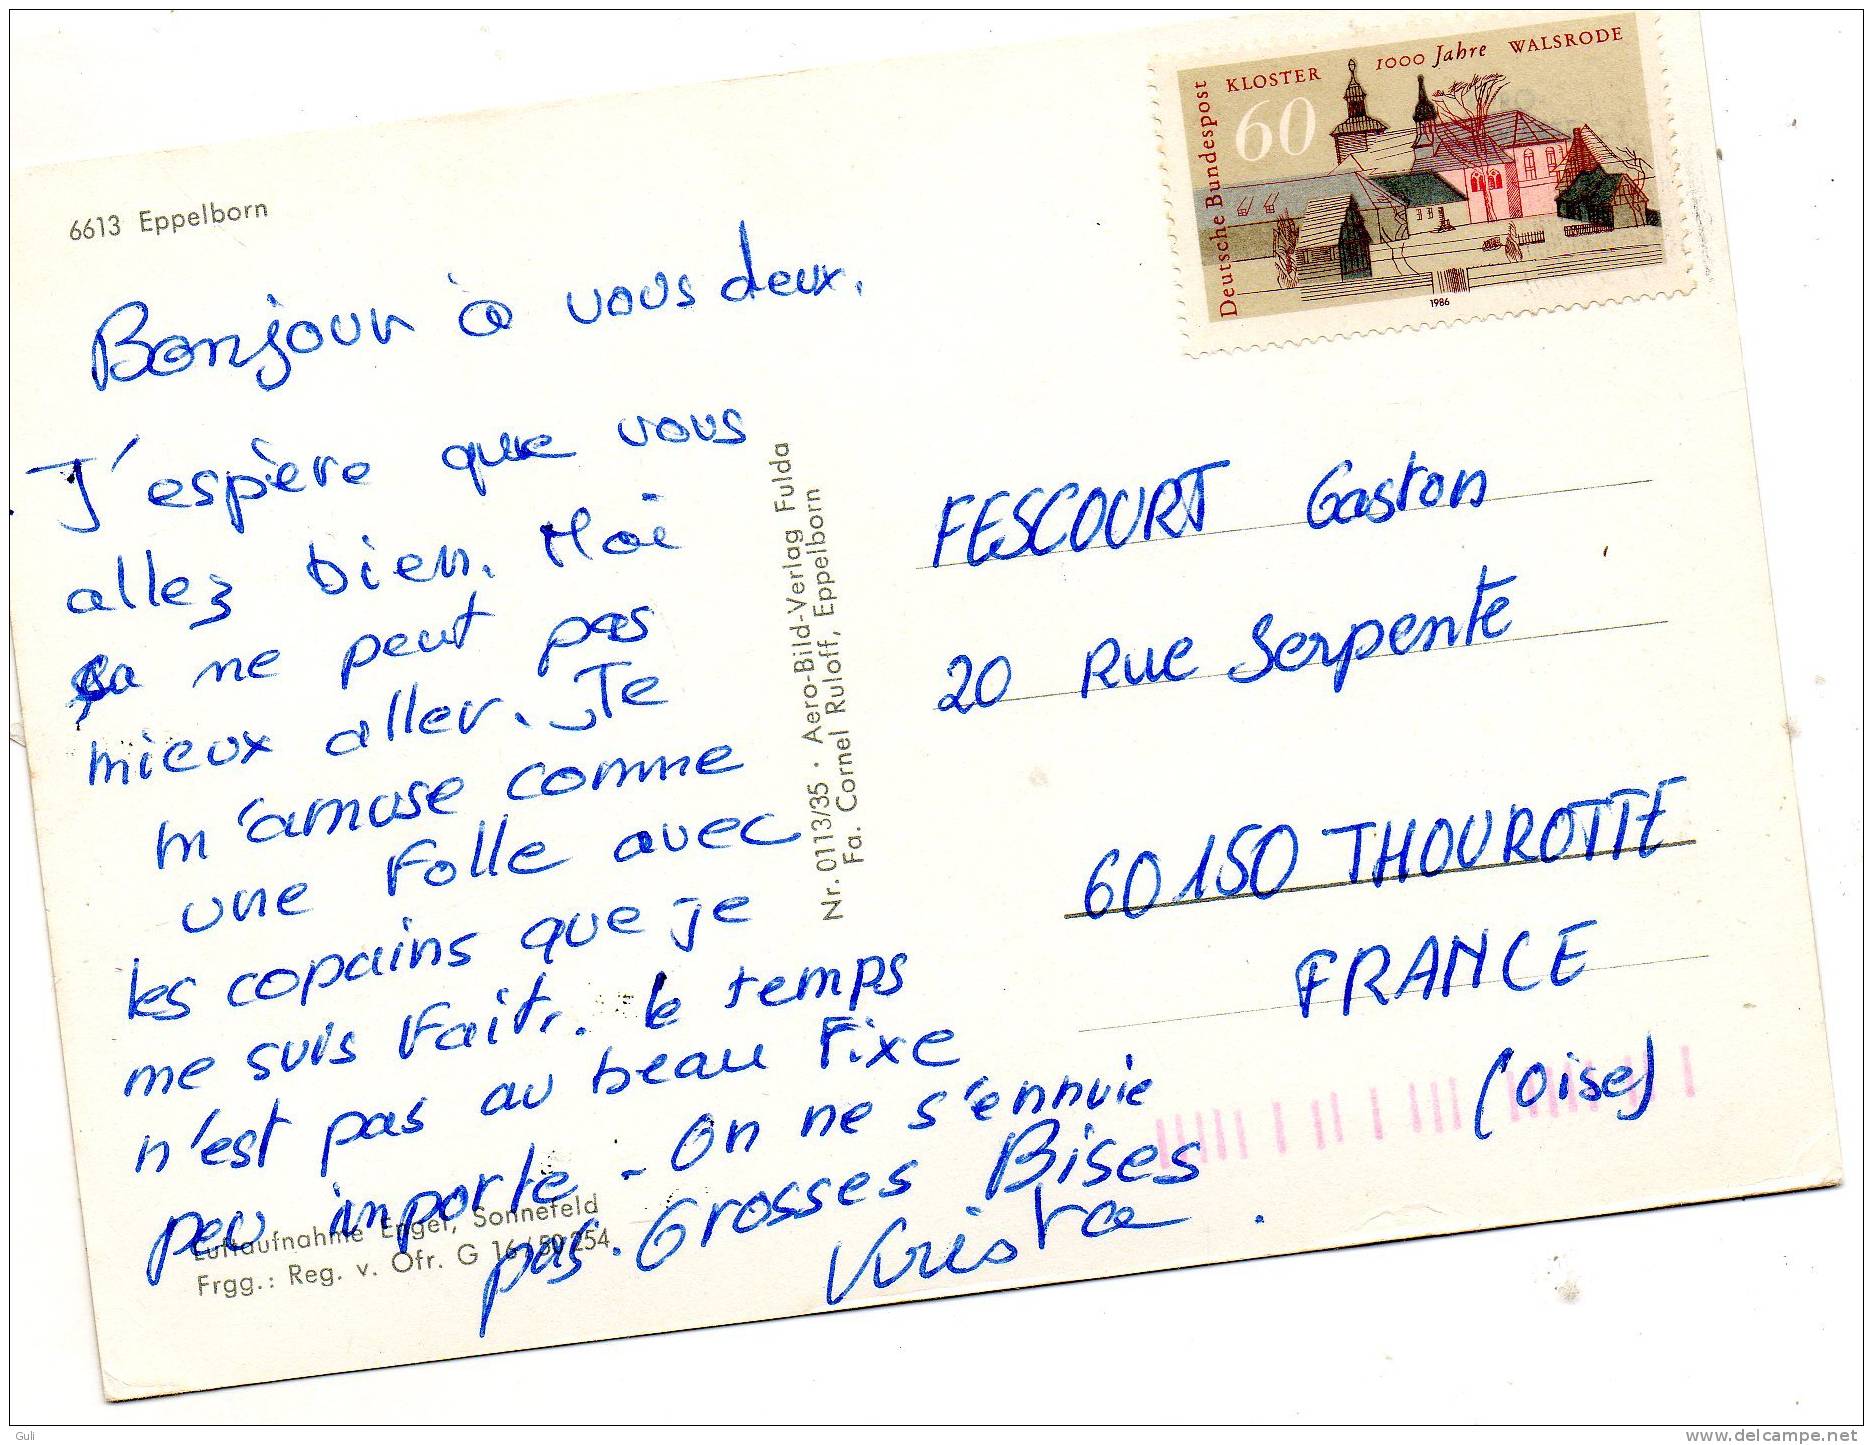 6613 Eppelborn
Bonjour à vous deux.
J'espère que vous
allez bien. Moi
ça ne peut pas
mieux aller. Je
m'amuse comme
une folle avec
les copains que je
me suis fait. le temps
n'est pas au beau fixe
peu importe - On ne s'ennuie
pas. Grosses Bises
Luftaufnahme Engel, Sonnefeld
Frgg.: Reg. v. Ofr. G 16/50 254
Nr. 0113/35 · Aero-Bild-Verlag Fulda
Fa. Cornel Ruloff, Eppelborn
KLOSTER 1000 Jahre WALSRODE
60
Deutsche Bundespost
1986
FESCOURT Gaston
20 Rue Serpente
60150 THOUROTTE
FRANCE
(Oise)
Guli
www.delcampe.net